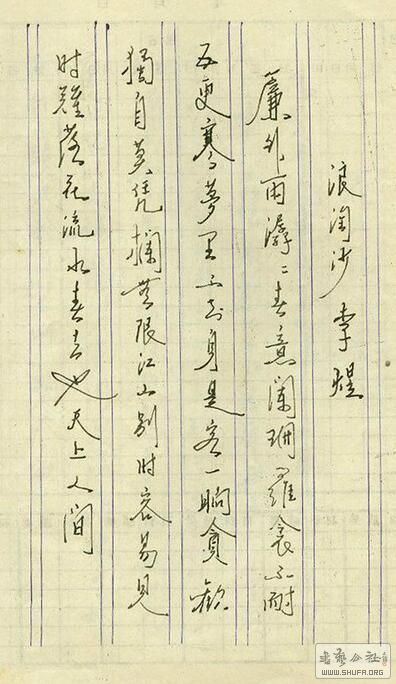 浪淘沙 李煜
簾外雨潺〻春意阑珊羅衾不耐
五更寒夢里不知身是客一晌貪歡
獨自莫凭欄無限江山别时容易見
时難落花流水春去也天上人间
WWW.SHUFA.ORG